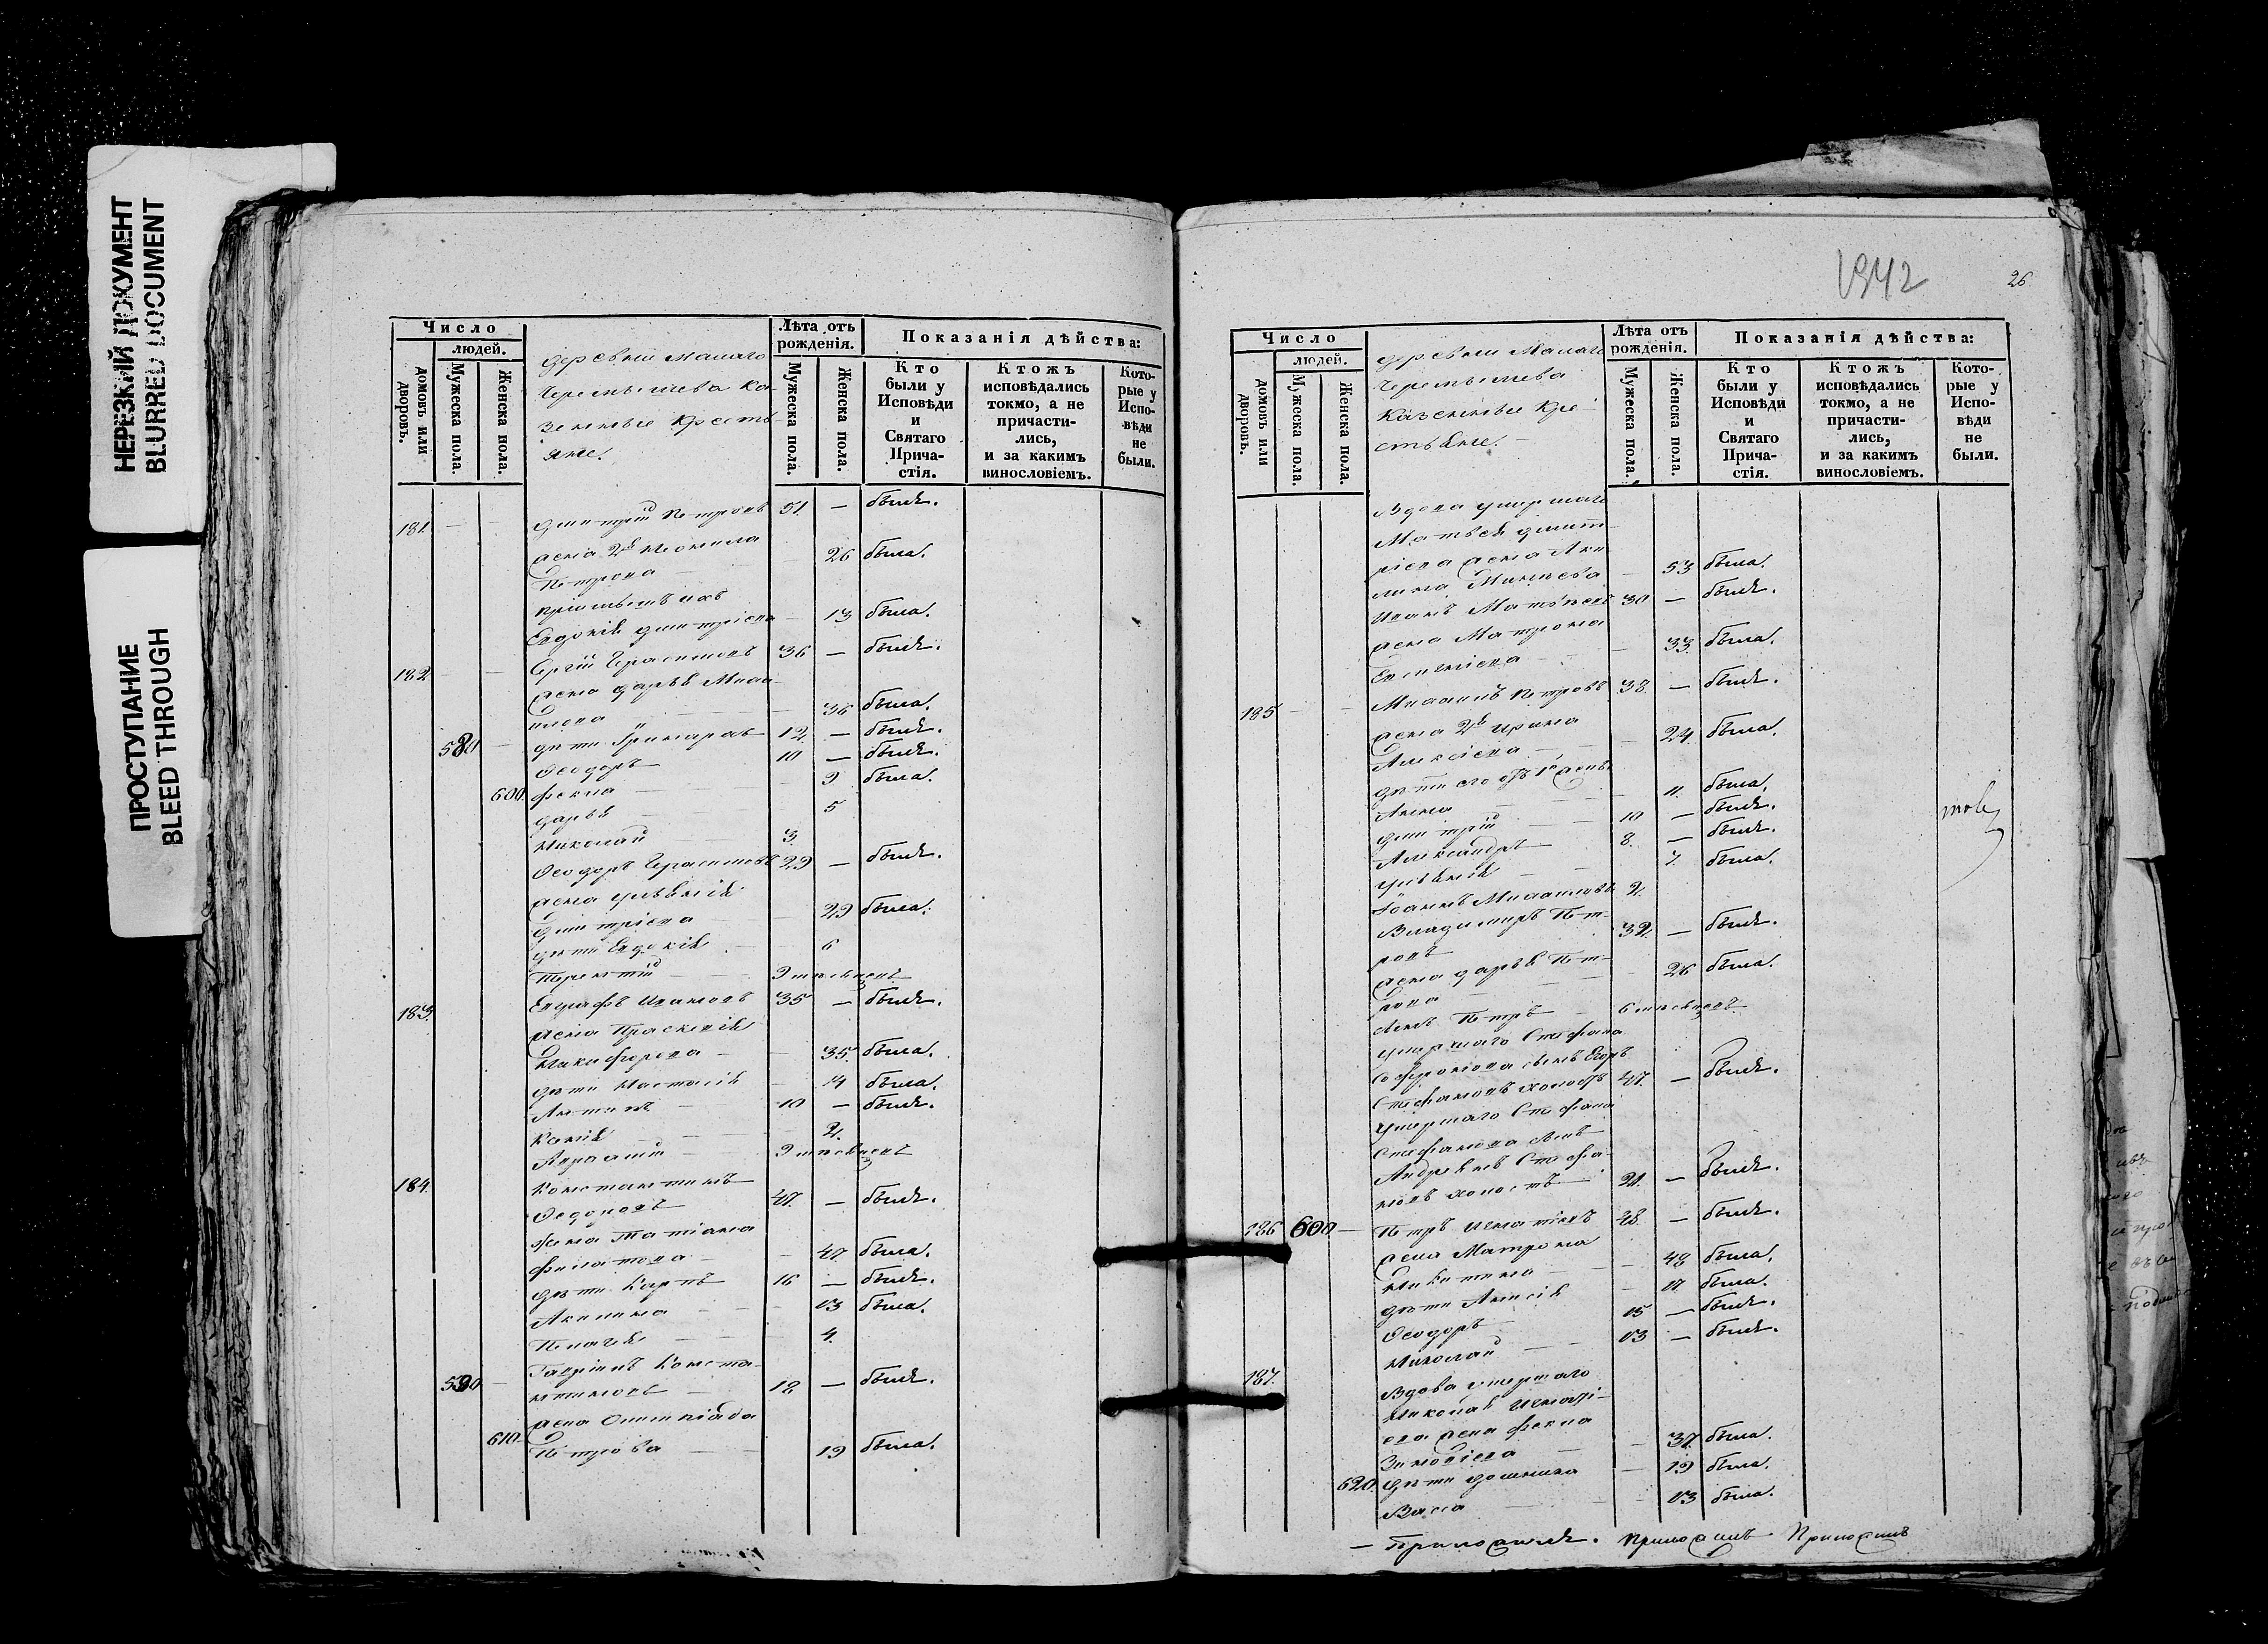 НЕРЕЗКИЙ ДОКУМЕНТ
BLURRED DOCUMENT
ПРОСТУПАНИЕ
BLEED THROUGH
Число
людей.
домовъ или дворовъ.
Мужеска пола.
Женска пола.
деревни Малаго
Черемышева Ка-
зенные Кресть-
яне.
Лѣта отъ рожденія.
Мужеска пола.
Женска пола.
Показанія дѣйства:
Кто были у Исповѣди и Святаго Прича-стія.
Ктожъ исповѣдались токмо, а не причасти-лись, и за какимъ винословіемъ.
Кото-рые у Испо-вѣди не были.
181. Димитрій Петровъ 51. — былъ.
жена 2я Неонила
Петрова — 26 была.
Евдокія Димитріева — 13 была.
182 Сергій Герасимовъ 36 — былъ.
жена Дарья Миха-
илова 36 была.
580 дѣти Григорій 12 — былъ.
Ѳеодоръ 10 — былъ.
600. Фекла — 9 была.
Дарья — 5
Николай — 3.
Ѳеодоръ Герасимовъ 29 — былъ.
жена Ульянія
Димитріева — 29 была.
дѣти Евдокія — 6
Терентій — 9 мѣсяцевъ
183. Евграфъ Ивановъ 35 — былъ.
жена Праскевія
Никифорова — 35. была.
дѣти Настасія — 14 была.
Антипъ — 10 — былъ.
Ксенія — 2.
9 мѣсяцевъ
184. Константинъ
47. — былъ.
жена Татіана
Филатова — 47 была.
дѣти Карпъ 16 — былъ.
Акилина — 13 была.
Пелагея — 4.
Гавріилъ Конста-
590 нтиновъ — 18 — былъ.
жена Олимпіада
610. Петрова — 19 была.
1942
26
Число
людей.
домовъ или дворовъ.
Мужеска пола.
Женска пола.
деревни Малаго
Черемышева
Казенные Кре-
стьяне. —
Лѣта отъ рожденія.
Мужеска пола.
Женска пола.
Показанія дѣйства:
Кто были у Исповѣди и Святаго Прича-стія.
Ктожъ исповѣдались токмо, а не причасти-лись, и за какимъ винословіемъ.
Кото-рые у Испо-вѣди не были.
Вдова умершаго
Матвея Димит-
ріева жена Аки-
лина — 53 была.
Иванъ Матвѣевъ 30 — былъ.
жена Матрона
33. была.
185 Михаилъ Петровъ 38 — былъ.
жена 2я Ирина
Алексіева — 24. была.
дѣти его отъ 1й жены
Анна — 11. была.
Димитрій — 10 — былъ.
Александръ — 8. — былъ.
Ульянія — 7. была.
Іоаннъ Михаиловъ 2.
Владимиръ Пет-
ровъ 32. — былъ.
жена Дарья Пет-
рова — 26 была.
сынъ Петръ — 6 мѣсяцевъ
умершаго Стефана
Софронова сынъ Егоръ
Стефановъ холостъ 47. — былъ.
умершаго Стефана
Стефанова сынъ
Андреянъ Стефа-
новъ холостъ 21. — былъ.
186 600 — Петръ Игнатіевъ 48. — былъ.
жена Матрона
Никитина — 48 была.
дѣти Анисія — 17 была.
Ѳеодоръ 15 — былъ.
Николай — 13 — былъ.
187. Вдова умершаго
Николая Игнаті-
ева жена Фекла
Зиновіева — 37. была.
620. дѣти Домника — 19 была.
Васса — 13 была.